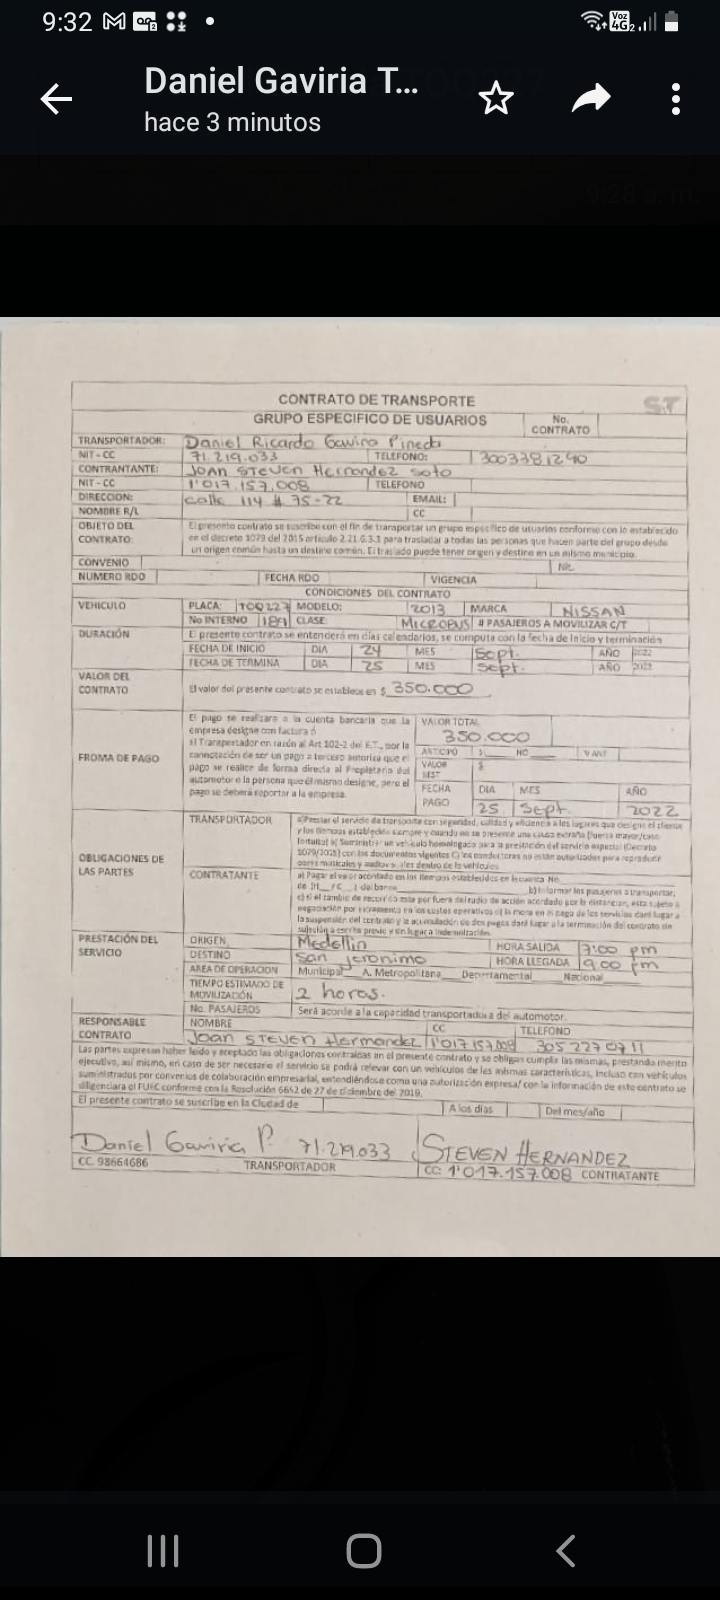 9:32
Voz 4G 2
Daniel Gaviria T...
hace 3 minutos
9:28 a. m.
CONTRATO DE TRANSPORTE
S.T
GRUPO ESPECIFICO DE USUARIOS No. CONTRATO
TRANSPORTADOR: Daniel Ricardo Gaviria Pineda
NIT - CC 71.219.033 TELEFONO: 3003381290
CONTRANTANTE: Joan STeven Hernandez Soto
NIT - CC 1'017.157.008 TELEFONO
DIRECCION: calle 114 # 75-22 EMAIL:
NOMBRE R/L CC
OBJETO DEL CONTRATO: El presente contrato se suscribe con el fin de transportar un grupo especifico de usuarios conforme con lo establecido
en el decreto 1079 del 2015 articulo 2.21.6.3.1 para trasladar a todas las personas que hacen parte del grupo desde
un origen común hasta un destino común. El traslado puede tener origen y destino en un mismo municipio.
CONVENIO Nit.
NUMERO RDO FECHA RDO VIGENCIA
CONDICIONES DEL CONTRATO
VEHICULO PLACA: TOQ227 MODELO: 2013 MARCA NISSAN
No INTERNO CLASE: MICROBUS # PASAJEROS A MOVILIZAR C/T
DURACIÓN El presente contrato se entenderá en días calendarios, se computa con la fecha de inicio y terminación
FECHA DE INICIO DIA 24 MES Sept. AÑO 2022
FECHA DE TERMINA DIA 25 MES Sept. AÑO 2022
VALOR DEL CONTRATO El valor del presente contrato se establece en $ 350.000
FROMA DE PAGO El pago se realizara a la cuenta bancaria que la
empresa designe con factura ó
El Transportador en razón al Art 102-2 del E.T., por la
connotación de ser un pago a tercero autoriza que el
pago se realice de forma directa al Propietario del
automotor o la persona que él mismo designe, pero el
pago se deberá reportar a la empresa.
VALOR TOTAL
350.000
ANTICIPO $ NO
VALOR $
FECHA PAGO DIA MES AÑO
25 Sept. 2022
OBLIGACIONES DE LAS PARTES
TRANSPORTADOR a)Prestar el servicio de transporte con seguridad, calidad y eficiencia a los lugares que designe el cliente
y los tiempos establecido siempre y cuando no se presente una causa extraña (fuerza mayor/caso
fortuito) b) Suministrar un vehículo homologado para la prestación del servicio especial (Decreto
1079/2015) con los documentos vigentes C) los conductores no están autorizados para reproducir
obras musicales y audiovisuales dentro de lo vehículos
CONTRATANTE a) Pagar el valor acordado en los tiempos establecidos en la cuenta No.
de del banco b) Informar los pasajeros a transportar,
c) si el cambio de recorrido esta por fuera del radio de acción acordado por la distancian, esta sujeto a
negociación por incremento en los costos operativos d) la mora en el pago de los servicios dará lugar a
la suspensión del contrato y la acumulación de dos pagos dará lugar a la terminación del contrato sin
sujeción a escrito previo y sin lugar a indemnización.
PRESTACIÓN DEL SERVICIO ORIGEN Medellin HORA SALIDA 7:00 pm
DESTINO san jeronimo HORA LLEGADA 9:00 pm
AREA DE OPERACION Municipal A. Metropolitana Departamental Nacional
TIEMPO ESTIMADO DE MOVILIZACIÓN 2 horas.
No. PASAJEROS Será acorde a la capacidad transportadora del automotor.
RESPONSABLE CONTRATO NOMBRE CC TELEFONO
Joan STeven Hernandez 1'017.157.008 305 227 0711
Las partes expresan haber leído y aceptado las obligaciones contraídas en el presente contrato y se obligan cumplir las mismas, prestando merito
ejecutivo, así mismo, en caso de ser necesario el servicio se podrá relevar con un vehículos de las mismas características, incluso con vehículos
suministrados por convenios de colaboración empresarial, entendiéndose como una autorización expresa/ con la información de este contrato se
diligenciara el FUEC conforme con la Resolución 6652 de 27 de diciembre del 2019.
El presente contrato se suscribe en la Ciudad de A los días Del mes/año
Daniel Gaviria P. 71.219.033 STEVEN HERNANDEZ
CC. 98664686 TRANSPORTADOR CC: 1'017.157.008 CONTRATANTE